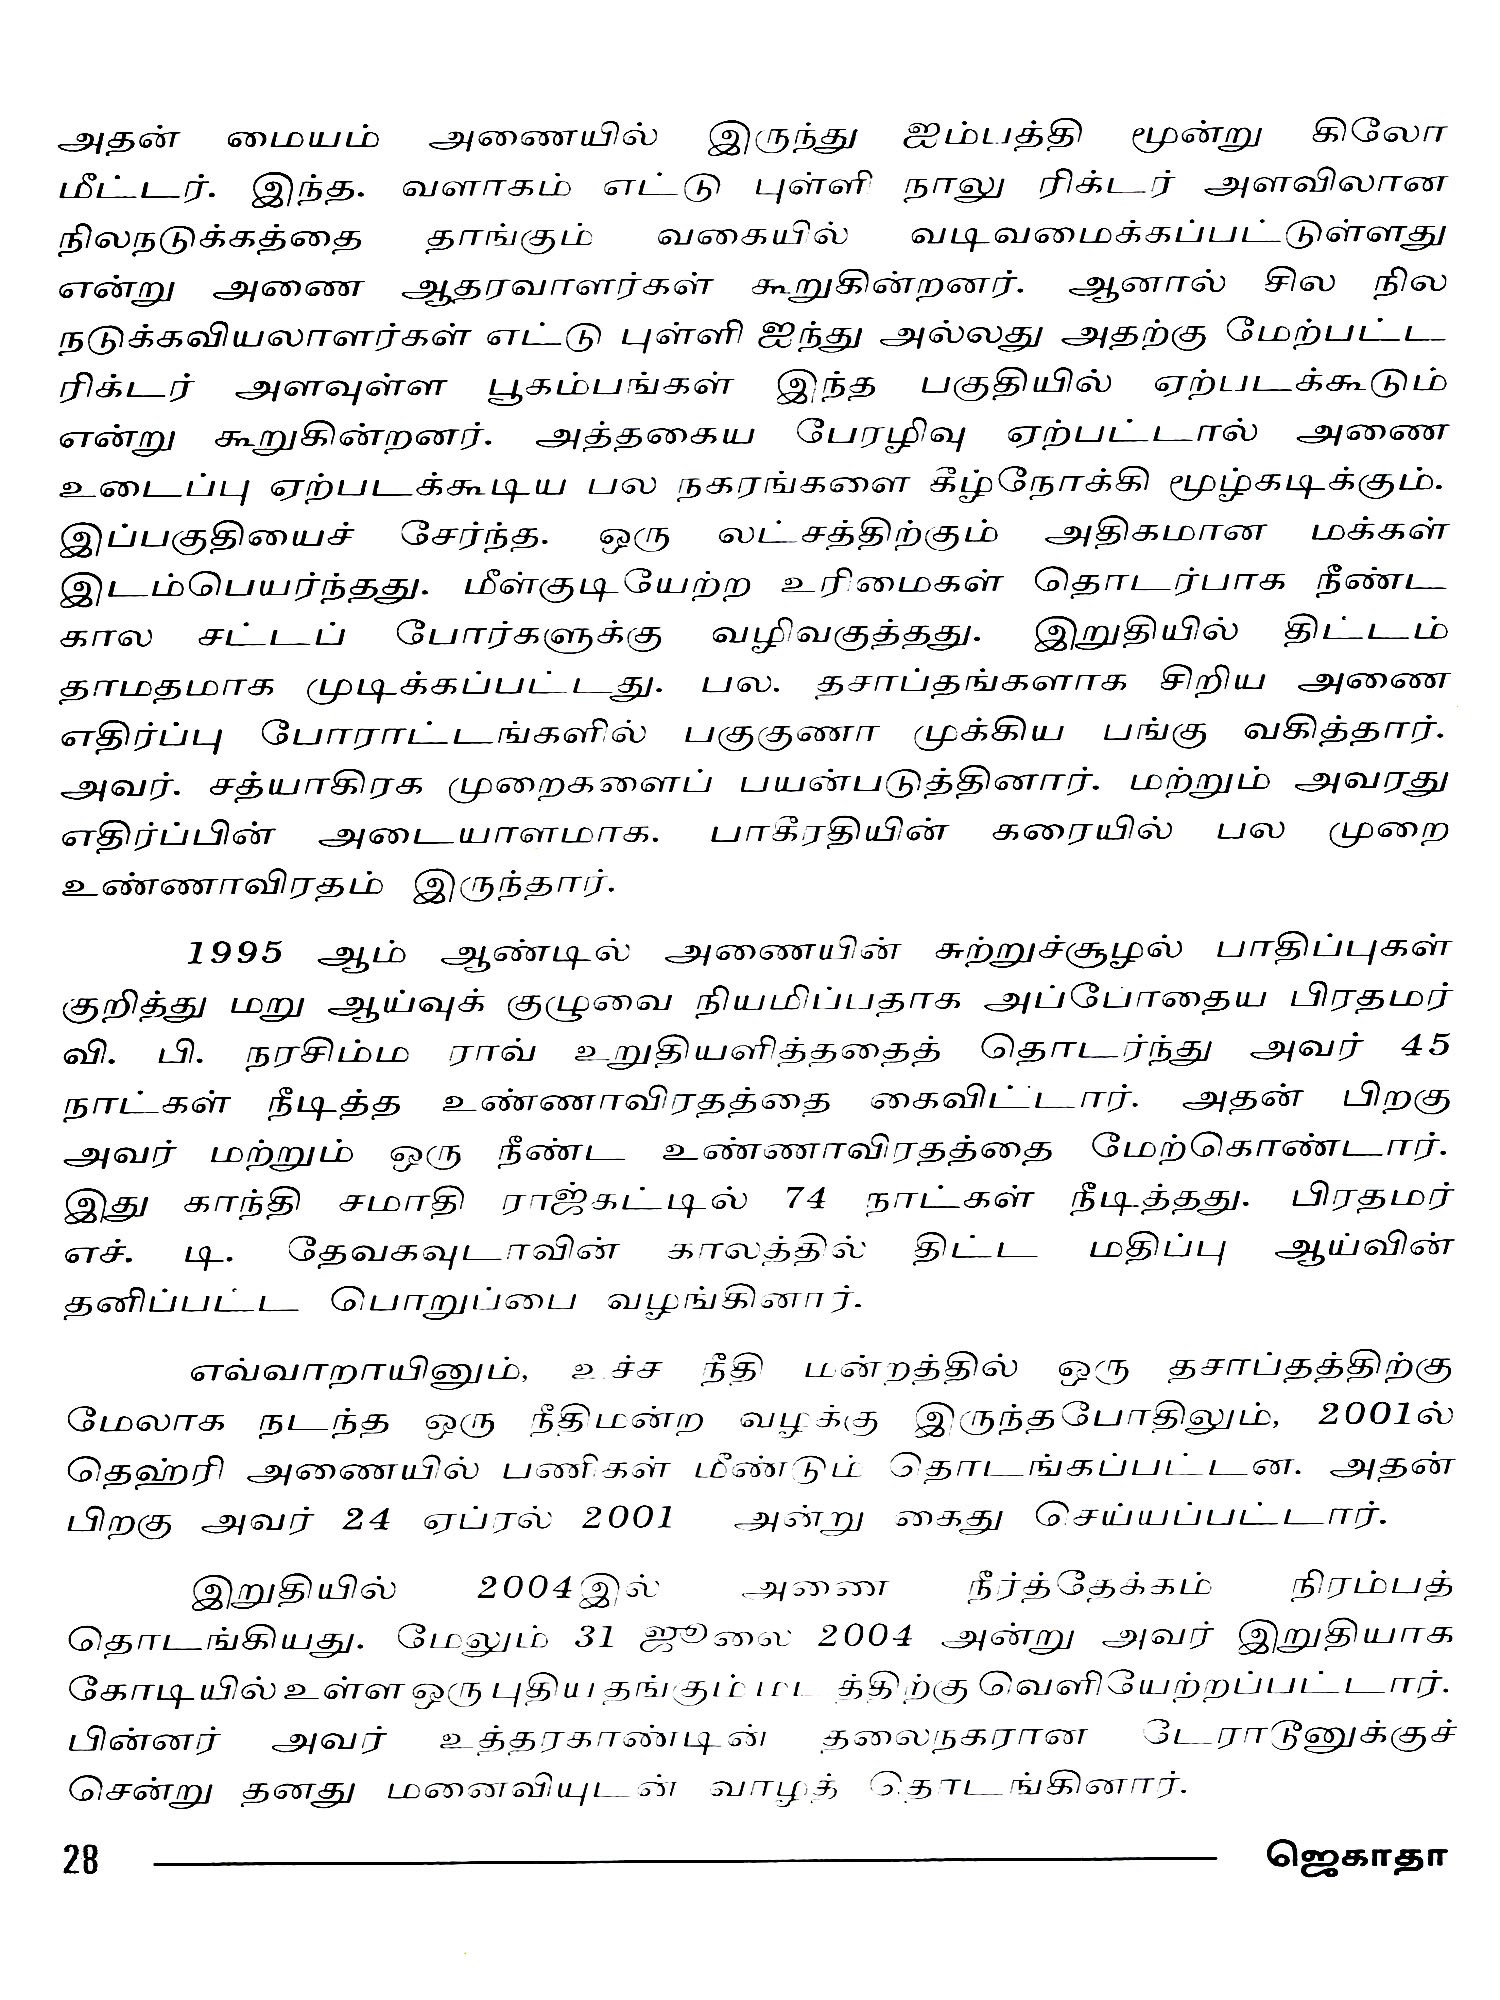 அதன் மையம் அணையில் இருந்து ஐம்பத்தி மூன்று கிலோ
மீட்டர். இந்த. வளாகம் எட்டு புள்ளி நாலு ரிக்டர் அளவிலான
நிலநடுக்கத்தை தாங்கும் வகையில் வடிவமைக்கப்பட்டுள்ளது
என்று அணை ஆதரவாளர்கள் கூறுகின்றனர். ஆனால் சில நில
நடுக்கவியலாளர்கள் எட்டு புள்ளி ஐந்து அல்லது அதற்கு மேற்பட்ட
ரிக்டர் அளவுள்ள பூகம்பங்கள் இந்த பகுதியில் ஏற்படக்கூடும்
என்று கூறுகின்றனர். அத்தகைய பேரழிவு ஏற்பட்டால் அணை
உடைப்பு ஏற்படக்கூடிய பல நகரங்களை கீழ்நோக்கி மூழ்கடிக்கும்.
இப்பகுதியைச் சேர்ந்த. ஒரு லட்சத்திற்கும் அதிகமான மக்கள்
இடம்பெயர்ந்தது. மீள்குடியேற்ற உரிமைகள் தொடர்பாக நீண்ட
கால சட்டப் போர்களுக்கு வழிவகுத்தது. இறுதியில் திட்டம்
தாமதமாக முடிக்கப்பட்டது. பல. தசாப்தங்களாக சிறிய அணை
எதிர்ப்பு போராட்டங்களில் பகுகுணா முக்கிய பங்கு வகித்தார்.
அவர். சத்யாகிரக முறைகளைப் பயன்படுத்தினார். மற்றும் அவரது
எதிர்ப்பின் அடையாளமாக. பாகீரதியின் கரையில் பல முறை
உண்ணாவிரதம் இருந்தார்.
1995 ஆம் ஆண்டில் அணையின் சுற்றுச்சூழல் பாதிப்புகள்
குறித்து மறு ஆய்வுக் குழுவை நியமிப்பதாக அப்போதைய பிரதமர்
வி. பி. நரசிம்ம ராவ் உறுதியளித்ததைத் தொடர்ந்து அவர் 45
நாட்கள் நீடித்த உண்ணாவிரதத்தை கைவிட்டார். அதன் பிறகு
அவர் மற்றும் ஒரு நீண்ட உண்ணாவிரதத்தை மேற்கொண்டார்.
இது காந்தி சமாதி ராஜ்கட்டில் 74 நாட்கள் நீடித்தது. பிரதமர்
எச். டி. தேவகவுடாவின் காலத்தில் திட்ட மதிப்பு ஆய்வின்
தனிப்பட்ட பொறுப்பை வழங்கினார்.
எவ்வாறாயினும், உச்ச நீதி மன்றத்தில் ஒரு தசாப்தத்திற்கு
மேலாக நடந்த ஒரு நீதிமன்ற வழக்கு இருந்தபோதிலும், 2001ல்
தெஹ்ரி அணையில் பணிகள் மீண்டும் தொடங்கப்பட்டன. அதன்
பிறகு அவர் 24 ஏப்ரல் 2001 அன்று கைது செய்யப்பட்டார்.
இறுதியில் 2004இல் அணை நீர்த்தேக்கம் நிரம்பத்
தொடங்கியது. மேலும் 31 ஜூலை 2004 அன்று அவர் இறுதியாக
கோடியில் உள்ள ஒரு புதிய தங்கும் மடத்திற்கு வெளியேற்றப்பட்டார்.
பின்னர் அவர் உத்தரகாண்டின் தலைநகரான டேராடூனுக்குச்
சென்று தனது மனைவியுடன் வாழத் தொடங்கினார்.
28 ஜெகாதா